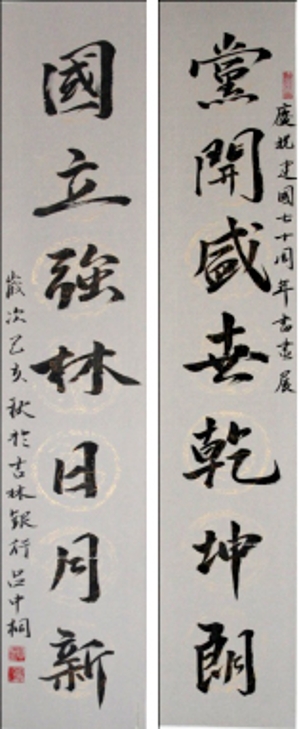 慶祝建國七十周年書畫展
黨開盛世乾坤朗
國立強林日月新
歲次己亥秋於吉林銀行呂中桐